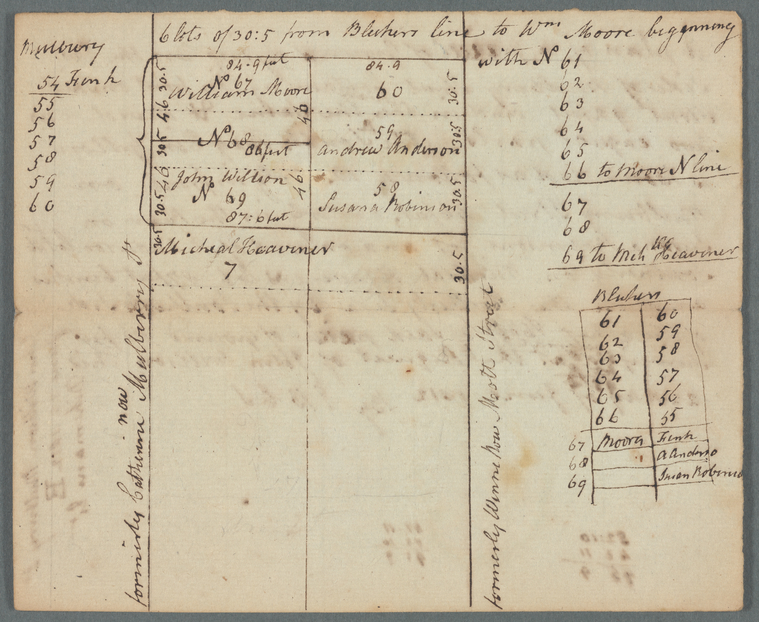 6 lots of 30:5 from Bleekers line to Wm Moore beginning
with No 61
62
63
64
65
66 to Moore N line
67
68
69 to Mich Heaviner
Mulbury
54 Fink
55
56
57
58
59
60
84-9 feet
No 67
William Moore
30.5
46
84.9
60
30.5
46
No 68
86 feet
30.5
59
Andrew Anderson
30.5
46
John Willson
No 69
87:6 feet
30.5
46
58
Susana Robinson
30.5
Micheal Heaviner
7
30.5
30.5
formerly Catherine now Mulberry St
formerly Winne now Mott Street
Bleekers
61 60
62 59
63 58
64 57
65 56
66 55
67 Moores Fink
68 A Anderso
69 Susan Robinso